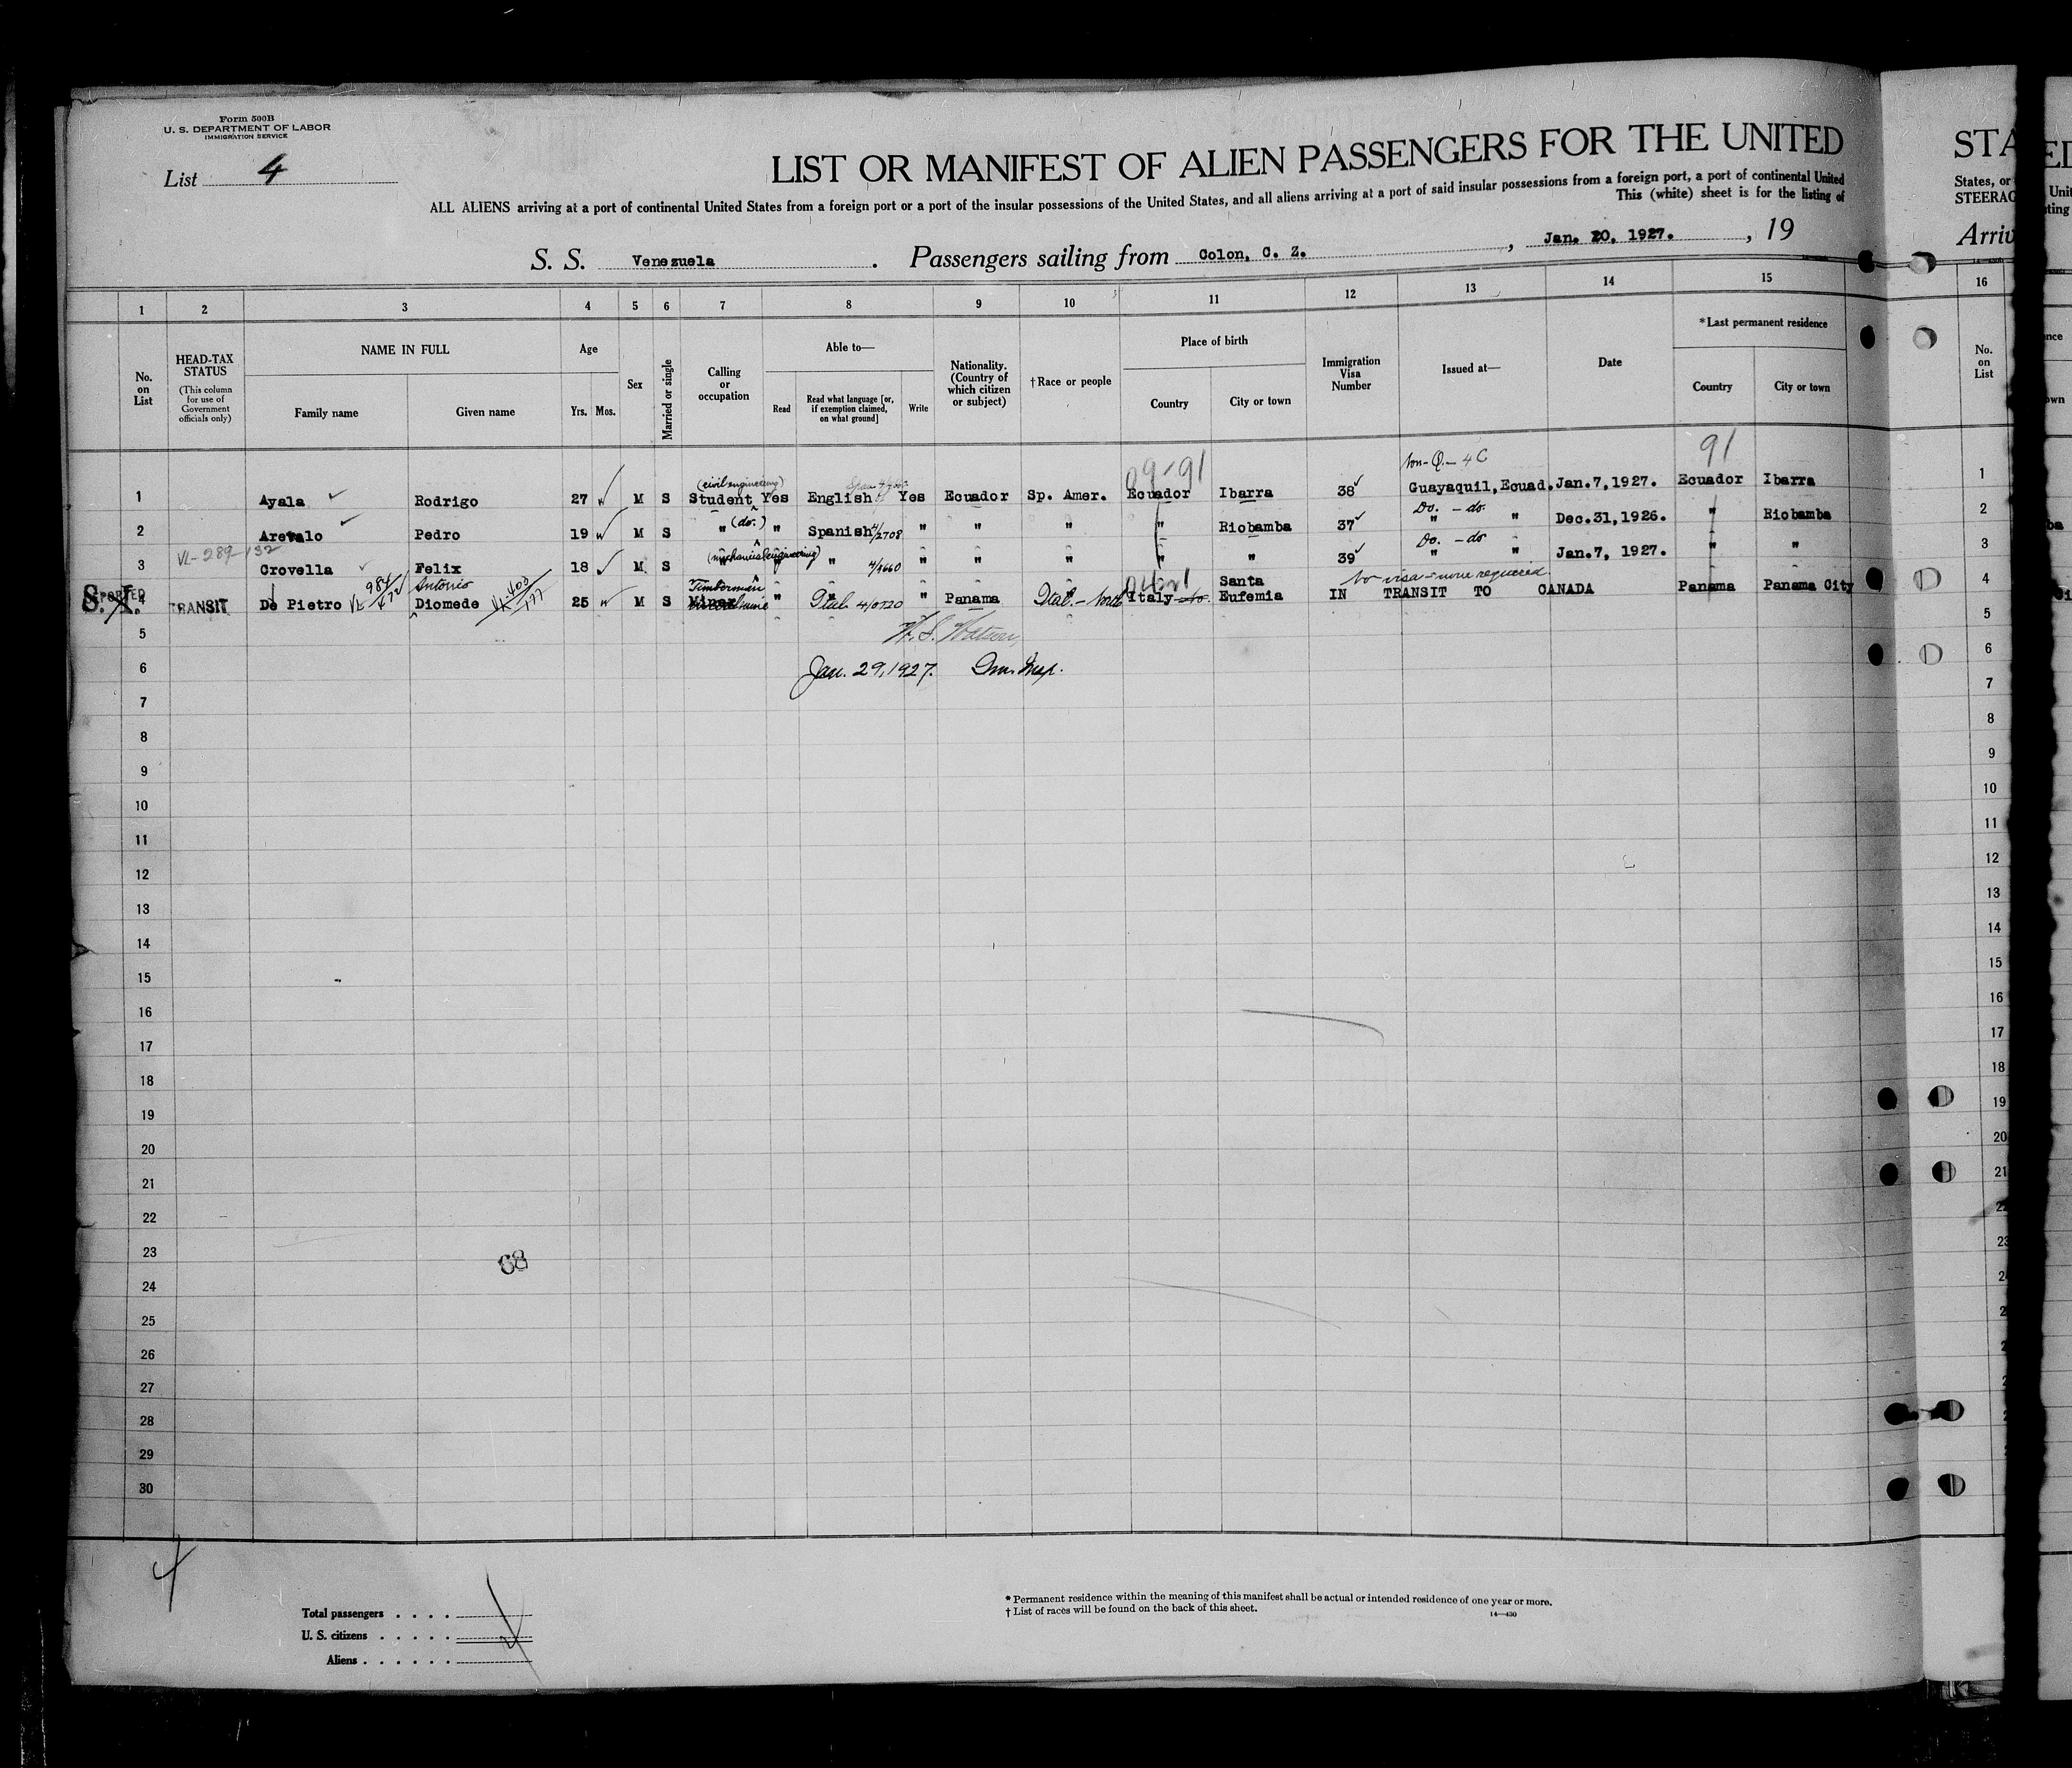 Form 500B
U. S. DEPARTMENT OF LABOR
IMMIGRATION SERVICE
List 4
LIST OR MANIFEST OF ALIEN PASSENGERS FOR THE UNITED
ALL ALIENS arriving at a port of continental United States from a foreign port or a port of the insular possessions of the United States, and all aliens arriving at a port of said insular possessions from a foreign port, a port of continental United
This (white) sheet is for the listing of
S. S. Venezuela. Passengers sailing from Colon, C. Z., Jan. 20, 1927., 19
STA
States, or
STEERAG
Arriv
1 2 3 4 5 6 7 8 9 10 11 12 13 14 15 16
No. on List
HEAD-TAX STATUS
(This column for use of Government officials only)
NAME IN FULL
Family name Given name
Age
Yrs. Mos.
Sex
Married or single
Calling or occupation
Able to—
Read
Read what language [or, if exemption claimed, on what ground]
Write
Nationality. (Country of which citizen or subject)
†Race or people
Place of birth
Country City or town
Immigration Visa Number
Issued at—
Date
*Last permanent residence
Country City or town
No. on List
09-91 Non-Q.-4C 91
(civil engineering)
1 Ayala Rodrigo 27 M S Student Yes English Yes Ecuador Sp. Amer. Ecuador Ibarra 38 Guayaquil, Ecuad. Jan. 7, 1927. Ecuador Ibarra 1
(do.) Do. - do.
2 Arevalo Pedro 19 M S " " Spanish 4/2708 " " " " Riobamba 37 " " Dec. 31, 1926. " Riobamba 2
VL-289-132 (mechanical engineering) Do. - do
3 Crovella Felix 18 M S " " " 4/1660 " " " " " 39 " " Jan. 7, 1927. " " 3
984 Antonio Timberman Santa No visa - none required.
S. I. 4 TRANSIT De Pietro Diomede 25 M S Miner " " Ital. 4/0520 " Panama Ital. - North Italy Eufemia IN TRANSIT TO CANADA Panama Panama City 4
5 W. S. Watson, 5
6 Jan. 29, 1927. Imm. Insp. 6
7 7
8 8
9 9
10 10
11 11
12 12
13 13
14 14
15 15
16 16
17 17
18 18
19 19
20 20
21 21
22
23
68
24
25
26
27
28
29
30
4
Total passengers
U. S. citizens
Aliens
* Permanent residence within the meaning of this manifest shall be actual or intended residence of one year or more.
† List of races will be found on the back of this sheet.
14—430